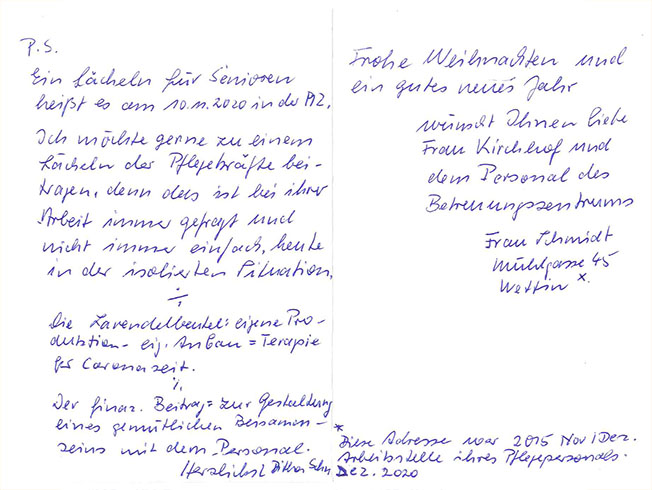 P.S.
Ein Lächeln für Senioren
heißt es am 10.11.2020 in der MZ.
Ich möchte gerne zu einem
Lächeln der Pflegekräfte bei-
tragen, denn das ist bei ihrer
Arbeit immer gefragt und
nicht immer einfach, heute
in der isolierten Situation.
./.
Die Lavendelbeutel: eigene Pro-
duktion - eig. Anbau = Terapie
für Coronazeit.
./.
Der finaz. Beitrag = zur Gestaltung
eines gemütlichen Beisamen-
seins mit dem Personal.
Herzlichst
Frohe Weihnachten und
ein gutes neues Jahr
wünscht Ihnen liebe
Frau Kirchhof und
dem Personal des
Betreuungszentrums
Frau Schmidt
Mühlgasse 45
Wettin *.
*
Diese Adresse war 2015 Nov/Dez.
Arbeitsstelle ihres Pflegepersonals.
Dez. 2020